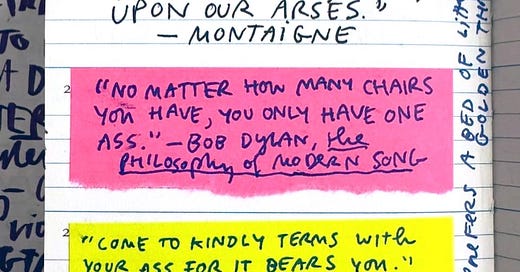 UPON OUR ARSES."
— MONTAIGNE
2
"NO MATTER HOW MANY CHAIRS
YOU HAVE, YOU ONLY HAVE ONE
ASS." — BOB DYLAN, the
PHILOSOPHY of MODERN SONG
2
"COME TO KINDLY TERMS with
YOUR ASS FOR IT BEARS YOU."
PREFERS A BED OF
GOLDEN
TO
A D